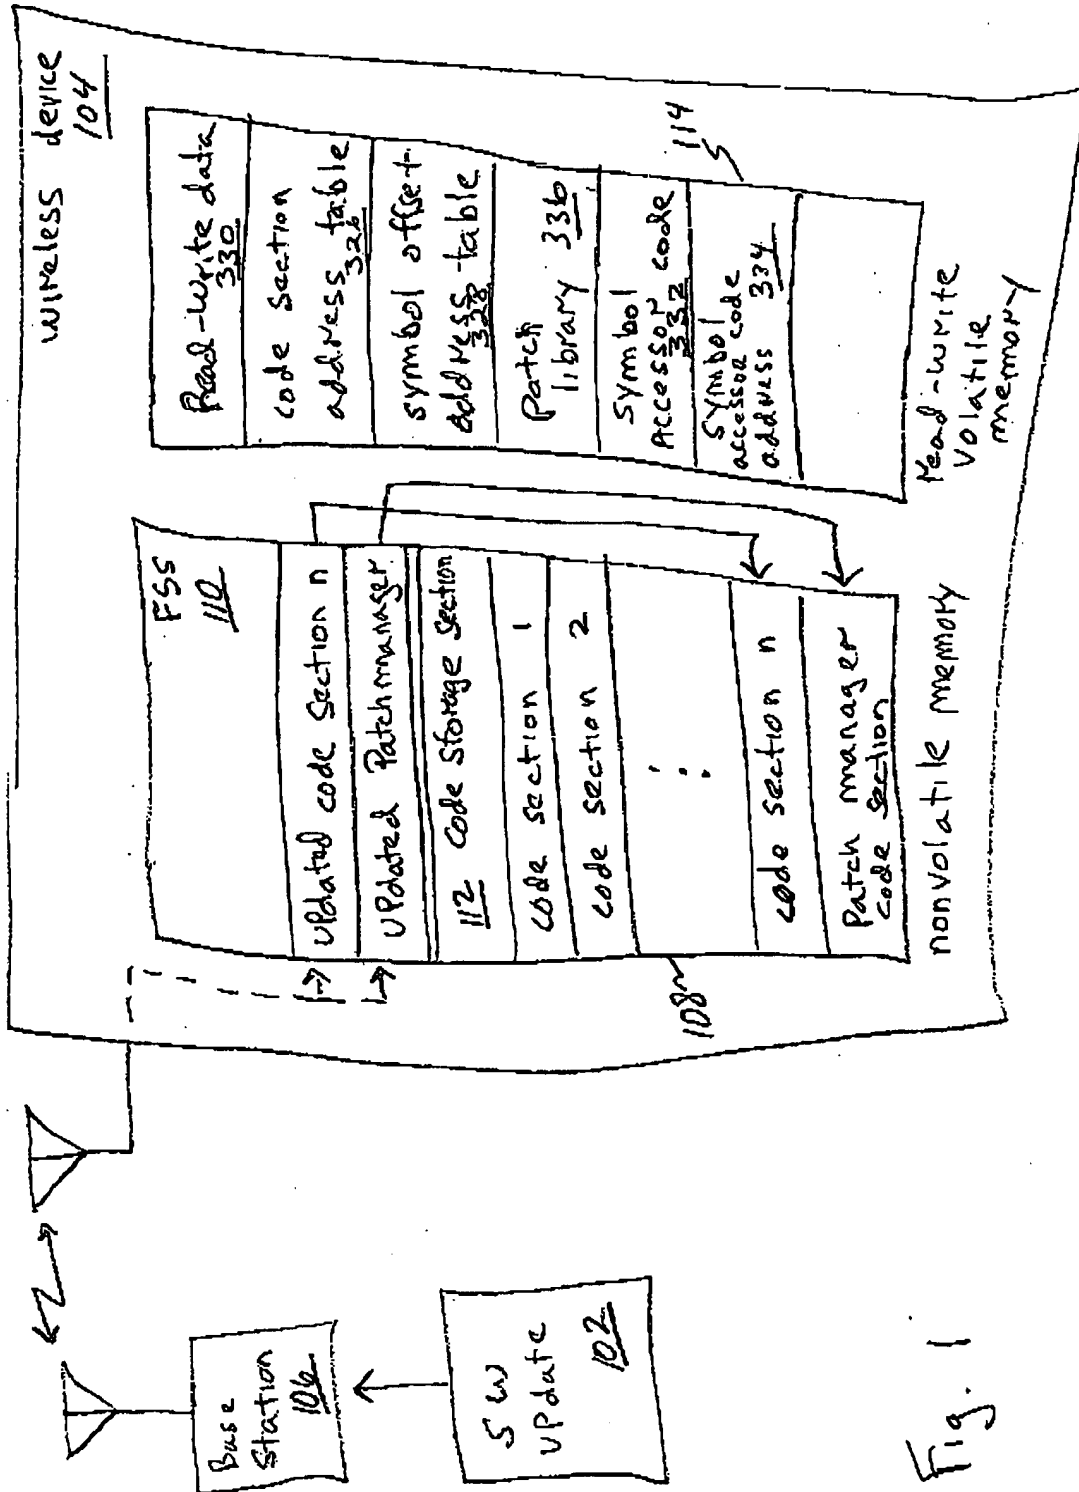 wireless device
104
FSS
110
updated code section n
updated Patch manager
112 code storage section
code section 1
code section 2
:
code section n
Patch manager
code section
108
nonvolatile memory
Read-write data
330
code section
address table
326
symbol offset
address table
328
Patch
library 336
symbol
accessor code
332
symbol
accessor code
address 334
114
read-write
volatile
memory
Base
Station
106
SW
update
102
Fig. 1